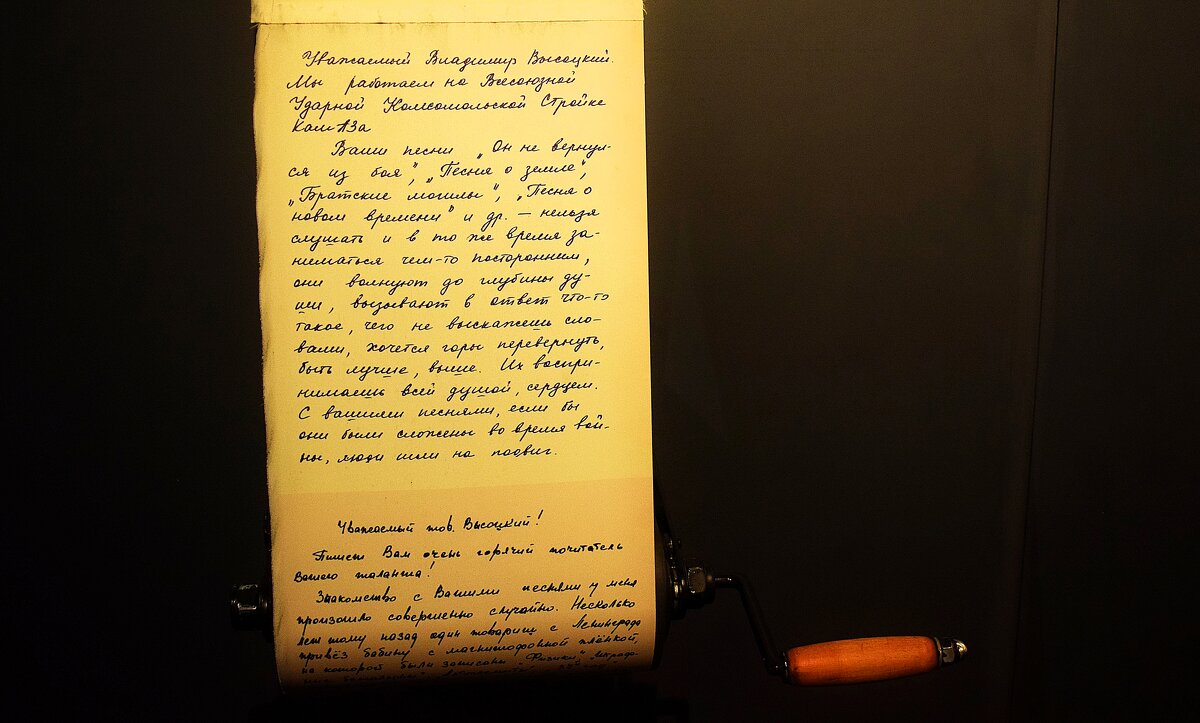 Уважаемый Владимир Высоцкий.
Мы работаем на Всесоюзной
Ударной Комсомольской Стройке
КамАЗа
Ваши песни „Он не вернул-
ся из боя", „Песня о земле",
„Братские могилы", „Песня о
новом времени" и др. — нельзя
слушать и в то же время за-
ниматься чем-то посторонним,
они волнуют до глубины ду-
ши, вызывают в ответ что-то
такое, чего не выскажешь сло-
вами, хочется горы перевернуть,
быть лучше, выше. Их воспри-
нимаешь всей душой, сердцем.
С вашими песнями, если бы
они были сложены во время вой-
ны, люди шли на подвиг.
Уважаемый тов. Высоцкий!
Пишет Вам очень горячий почитатель
Вашего таланта!
Знакомство с Вашими песнями у меня
произошло совершенно случайно. Несколько
лет тому назад один товарищ с Ленинграда
привёз бабину с магнитофонной плёнкой,
на которой были записаны „Физики",